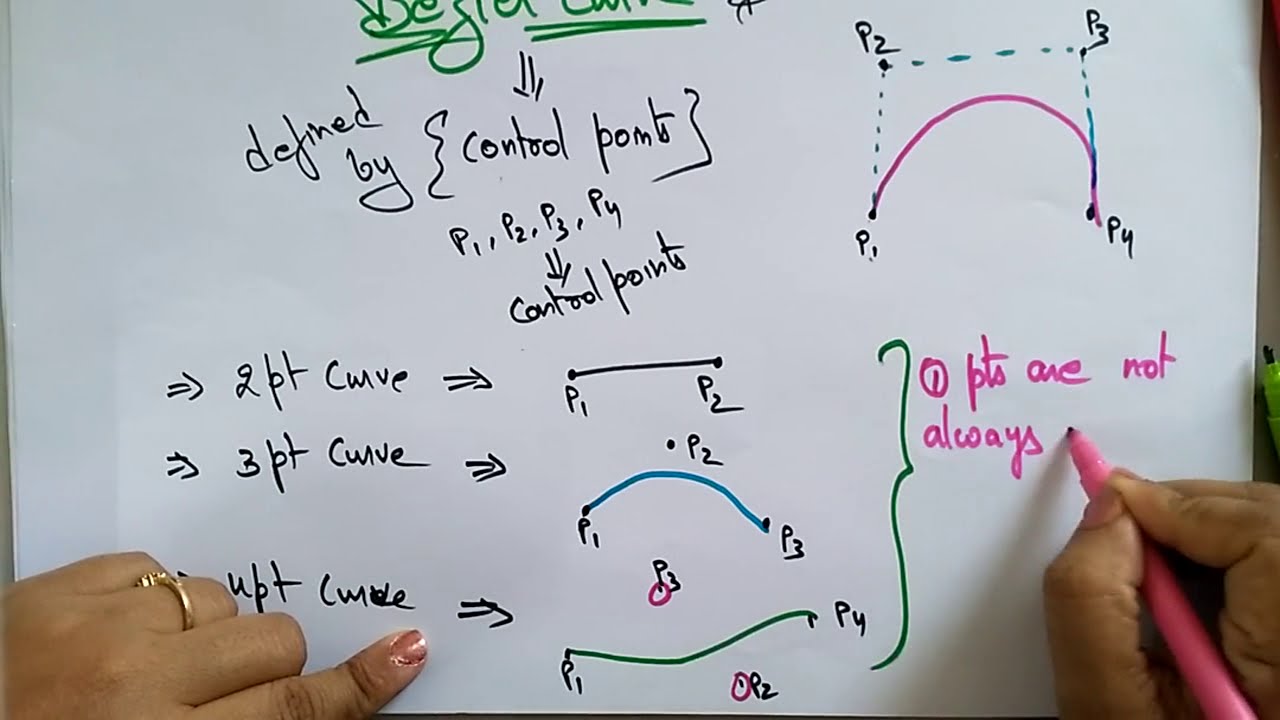 Bezier Curve *
defined by { control points }
P1, P2, P3, P4
⇓
control points
P2 P3
P1 P4
⇒ 2pt Curve ⇒ P1 P2
⇒ 3pt Curve ⇒ P1 P2 P3
4pt Curve ⇒ P1 P3 P2 P4
① pts are not
always